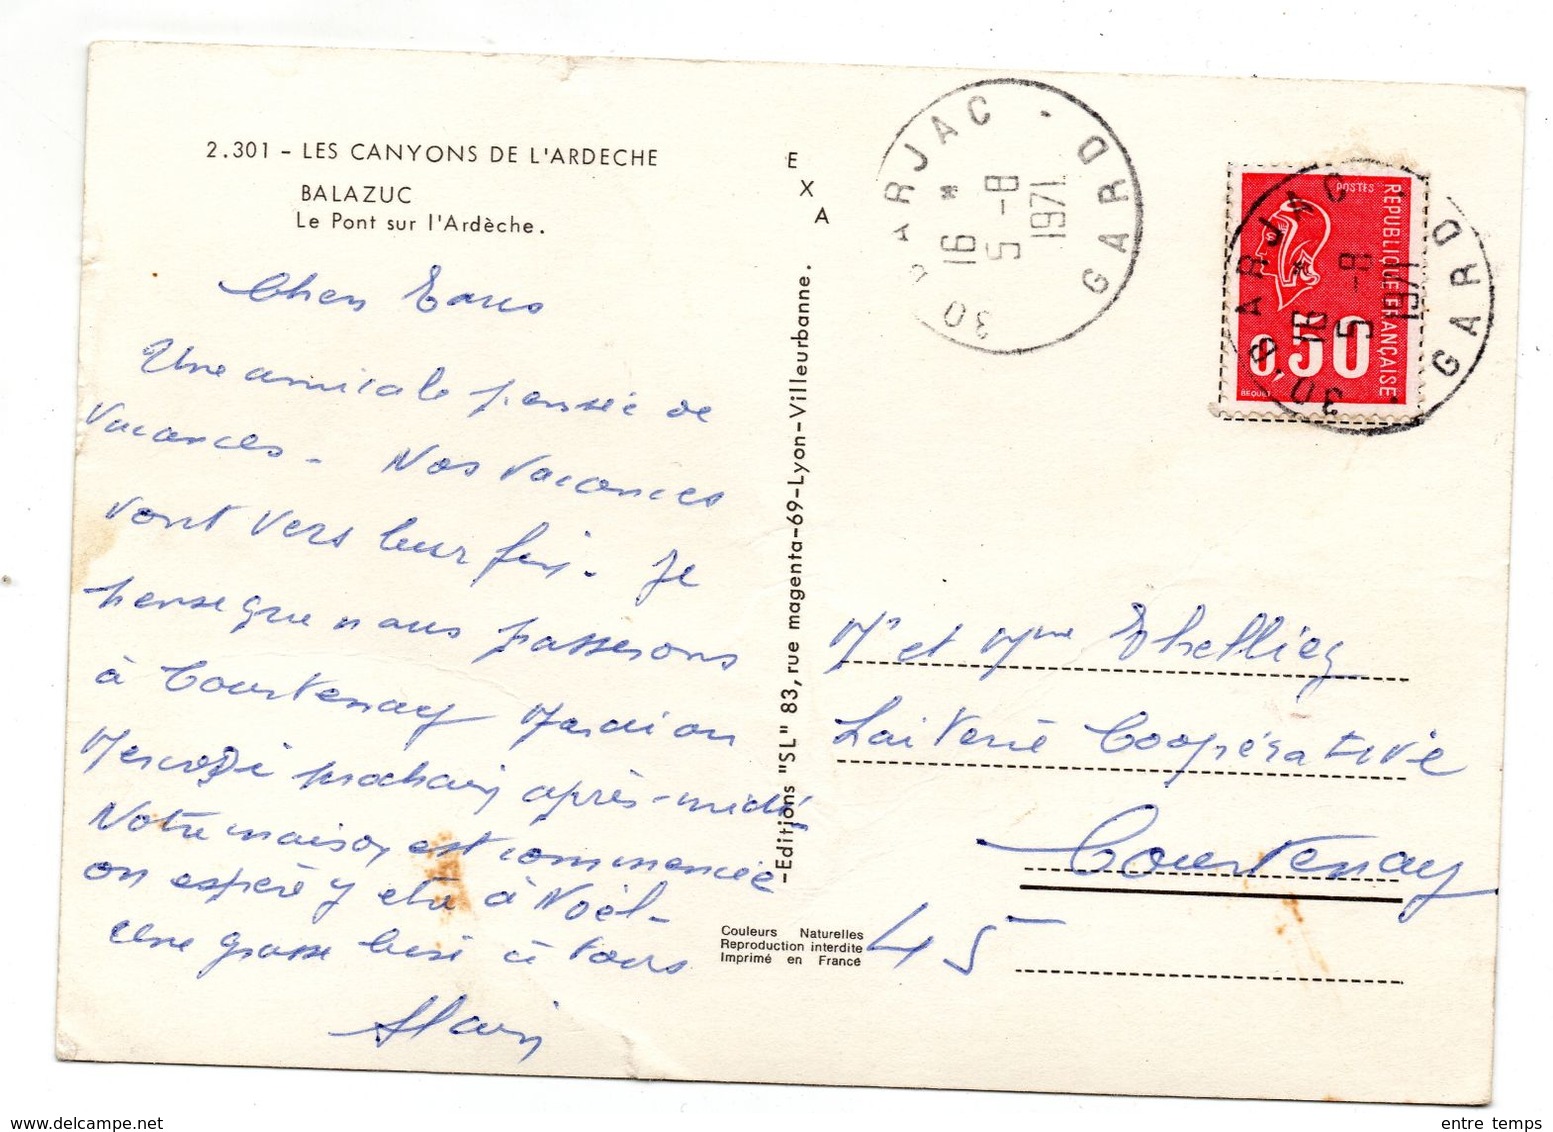 2.301 - LES CANYONS DE L'ARDECHE
BALAZUC
Le Pont sur l'Ardèche.
Chers Tous
Une amicale pensée de
vacances - Nos vacances
vont vers leur fin. Je
pense que nous passerons
à Courtenay Mardi ou
Mercredi prochain après-midi
Notre maison est commencée
on espère y être à Noël -
Une grosse bise à tous
Alain
E
X
A
-Editions "SL" 83, rue magenta-69-Lyon-Villeurbanne.
Couleurs Naturelles
Reproduction interdite
Imprimé en France
30 BARJAC - GARD
16 *
5 -8
1971
POSTES
REPUBLIQUE FRANÇAISE
0,50
BEQUET
30 BARJAC - GARD
16 *
5 -8
1971
Mr et Mme
Laiterie Coopérative
Courtenay
45
entre temps